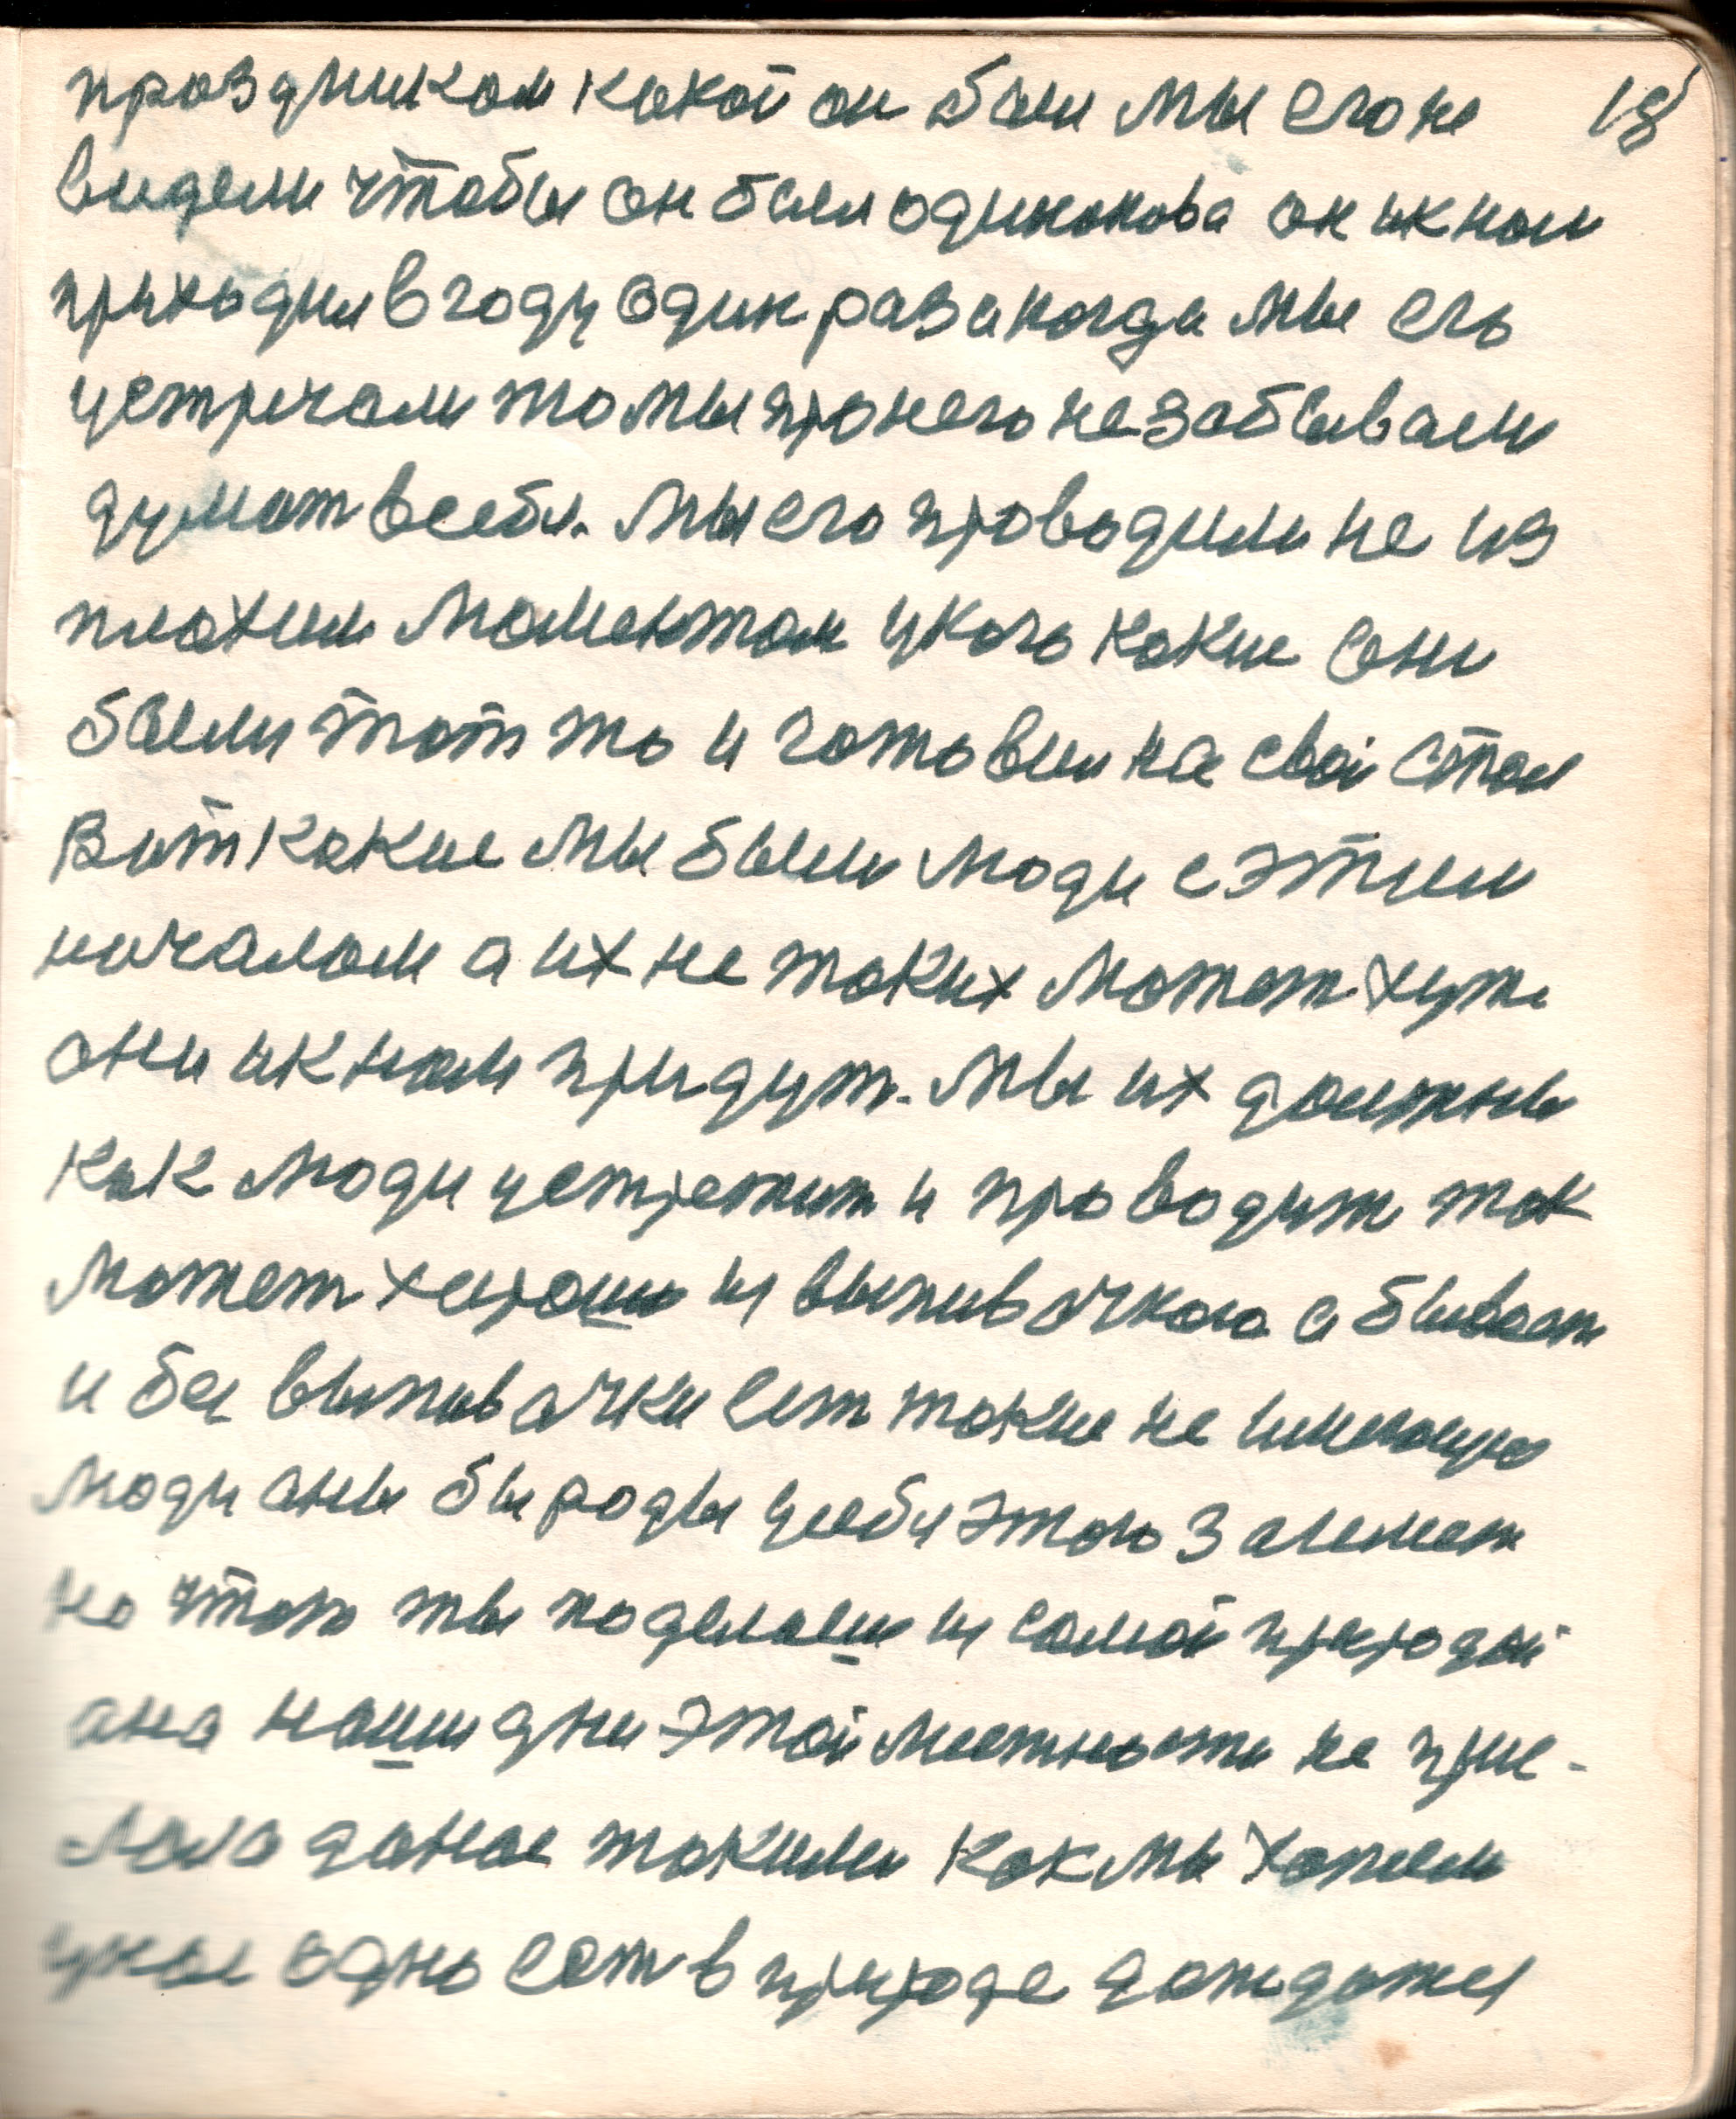 праздником какой он был мы его не 18
видели чтобы он был одинокова он и к нам
приходил в году один раз и когда мы его
устричали то мы про него не забывали
думат в себя. Мы его проводили не из
плохим моментам у кого какие они
были тот то и готовил на свой стол
Вот какие мы были люди с этим
началом а их не таких может хужи
они и к нам придут. Мы их должны
как люди устретит и проводит так
может хороши и выпивачкою а бывает
и без выпивачки ест такие не имеющи
люди они бы рады у себя этого
но что ты поделаеш и самой природой
она наши дни этой местности не при-
мала даное такими как мы хотели
у нас одно ест в природе